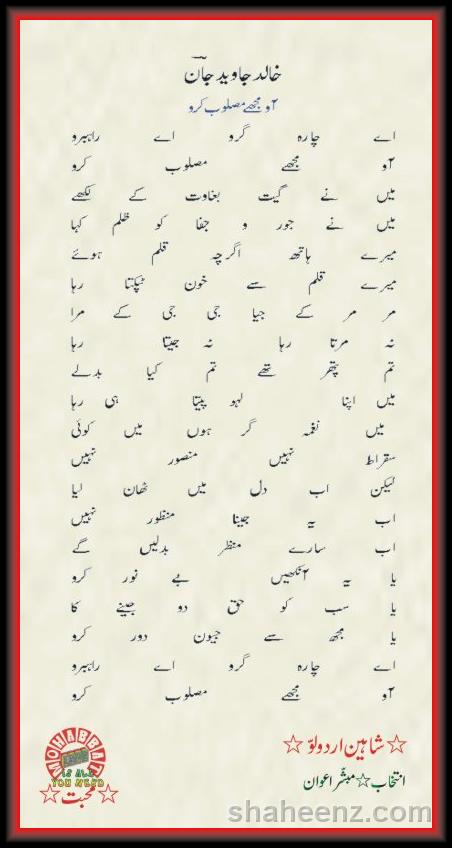 خالد جاوید جاںؔ
آو مجھے مصلوب کرو
اے چارہ گرو اے راہبرو
آو مجھے مصلوب کرو
میں نے گیت بغاوت کے لکھے
میں نے جور و جفا کو ظلم کہا
میرے ہاتھ اگرچہ قلم ہوئے
میرے قلم سے خون ٹپکتا رہا
مر مر کے جیا جی جی کے مرا
نہ مرتا رہا نہ جیتا رہا
تم پتھر تھے تم کیا بدلے
میں اپنا لہو پیتا ہی رہا
میں نغمہ گر ہوں میں کوئی
سقراط نہیں منصور نہیں
لیکن اب دل میں ٹھان لیا
اب یہ جینا منظور نہیں
اب سارے منظر بدلیں گے
یا یہ آنکھیں بے نور کرو
یا سب کو حق دو جینے کا
یا مجھ سے جیون دور کرو
اے چارہ گرو اے راہبرو
آو مجھے مصلوب کرو
☆شاہین اردو لوّ☆
انتخاب☆مبشّر اعوان
MOHABBAT
IS ALL
YOU NEED
☆محبت☆
shaheenz.com